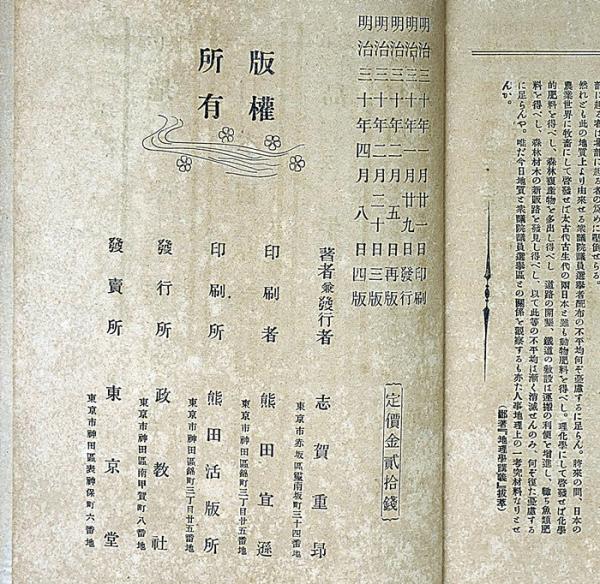 前に起る者は最前に起る者の爲めに壓倒せらる。
然れども此の地質上より由來せる衆議院議員選擧者配布の不平均何ぞ憂慮するに足らん。將來の間、日本の
農業世界に牧畜にして啓發せば太古代古生代の兩日本と雖も動物肥料を得べし。理化學にして啓發せば化學
的肥料を得べし、森林副產物を多出し得べし、道路の開鑿、鐵道の敷設は運搬の利便を增進し、輙ち魚類肥
料を得べし、森林材木の新販路を發見し得べし、以て此等の不平均は漸く消滅せんのみ、何ぞ復た憂慮する
に足らんや。唯だ今日地質と衆議院議員選擧區との關係を觀察するも亦た人事地理上の一考究材料なりとせ
んか。
(鄙著『地理學講義』拔萃)
明治三十年一月廿一日印刷
明治三十年一月廿九日發行
明治三十年二月五日再版
明治三十年二月二十日三版
明治三十年四月八日四版
定價金貳拾錢
版權
所有
著者兼發行者 志賀重昻
東京市赤坂區靈南坂町三十四番地
印刷者 熊田宣遜
東京市神田區錦町三丁目廿五番地
印刷所 熊田活版所
東京市神田區錦町三丁目廿五番地
發行所 政教社
東京市神田區南甲賀町八番地
發賣所 東京堂
東京市神田區表神保町六番地